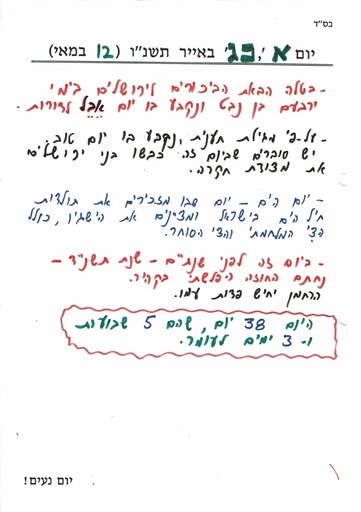 בס"ד
יום א', כג' באייר תשנ"ו (12 במאי)
- בטלה הבאת הביכורים לירושלים בימי
ירבעם בן נבט ונקבע בו יום אבל לדורות.
- על-פי מגילת תענית, נקבע בו יום טוב.
יש סוברים שביום זה כבשו בני ירושלים
את מצודת חקרה.
- יום הים - יום שבו מזכירים את תולדות
חיל הים בישראל ומציינים את הישגיו, כולל
הצי המלחמתי והצי הסוחר.
- ביום זה לפני שנתיים - שנת תשנ"ד -
נחתם החוזה הפלשתי בקהיר.
הרחמן יחיש פדות עמו.
היום 38 יום, שהם 5 שבועות
ו- 3 ימים לעומר.
יום נעים!